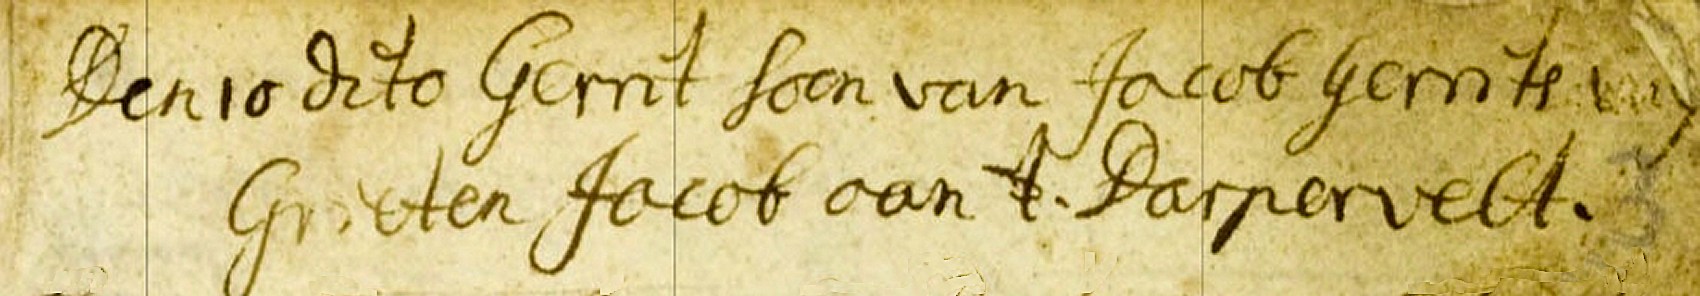 Den 10 dito Gerrit soon van Jacob Gerrits
Grieten Jacob aan t. Darpervelt.